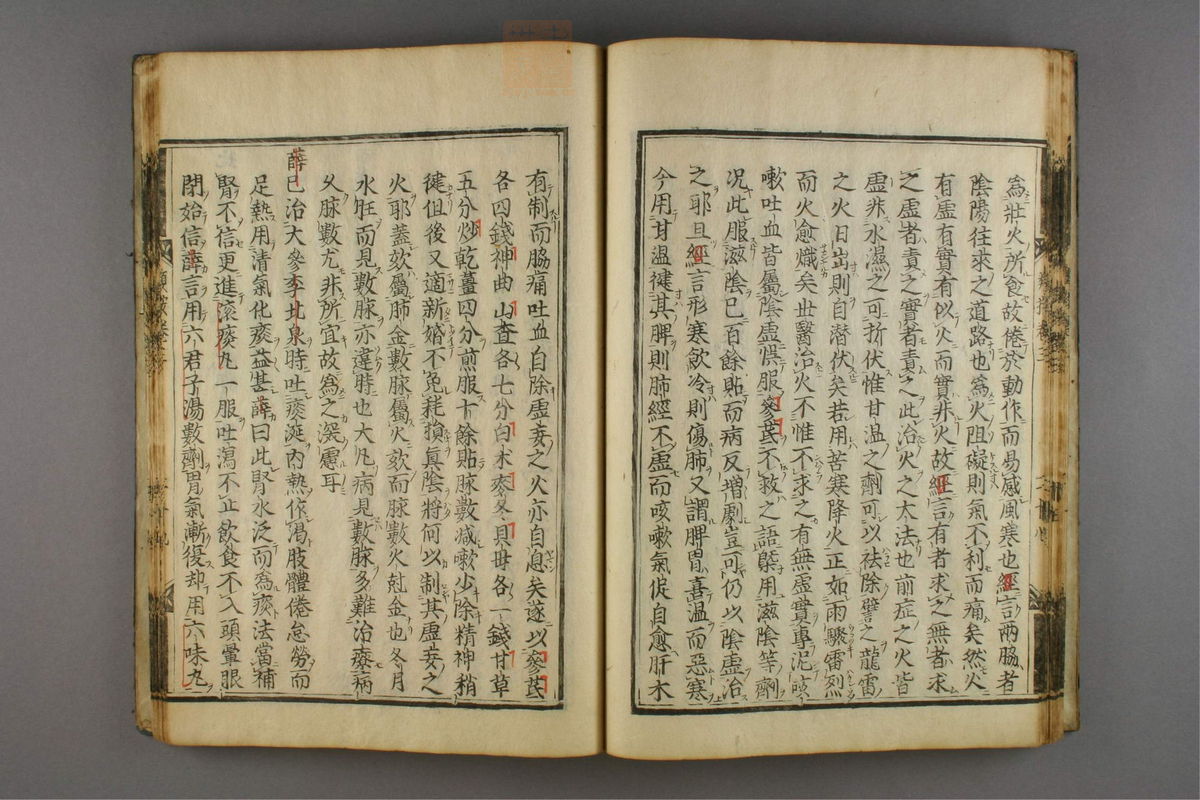 為壯火所食故倦於動作而易感風寒也經言兩脇者
陰陽往來之道路也為火阻礙則氣不利而痛矣然火
有虛有實有似火而實非火故經言有者求之無者求
之虛者責之實者責之此治火之大法也前症之火皆
虛非水濕之可折伏惟甘溫之劑可以祛除譬之龍雷
之火日出則自潛伏矣若用苦寒降火正如雨驟雷烈
而火愈熾矣世醫治火不惟不求之有無虛實專泥咳
嗽吐血皆屬陰虛悞服參芪不救之語槩用滋陰等劑
况此服滋陰已百餘貼而病反增劇豈可仍以陰虛治
之耶且經言形寒飲冷則傷肺又謂脾胃喜溫而惡寒
今用甘溫健其脾則肺經不虛而咳嗽氣促自愈肝木
有制而脇痛吐血自除虛妄之火亦自息矣遂以參芪
各四錢神曲山查各七分白术麥冬貝母各一錢甘草
五分炒乾薑四分煎服十餘貼脉數減嗽少除精神稍
健但後又適新婚不免耗損真陰將何以制其虛妄之
火耶蓋欬屬肺金數脉屬火欬而脉數火尅金也冬月
水旺而見數脉亦違時也大凡病見數脉多難治療病
久脉數尤非所宜故為之深慮耳
薛巳治大參李北泉時吐痰涎內熱作渴肢體倦怠勞而
足熱用清氣化痰益甚薛曰此腎水泛而為痰法當補
腎不信更進滾痰丸一服吐瀉不止飲食不入頭暈眼
閉始信薛言用六君子湯數劑胃氣漸復却用六味丸